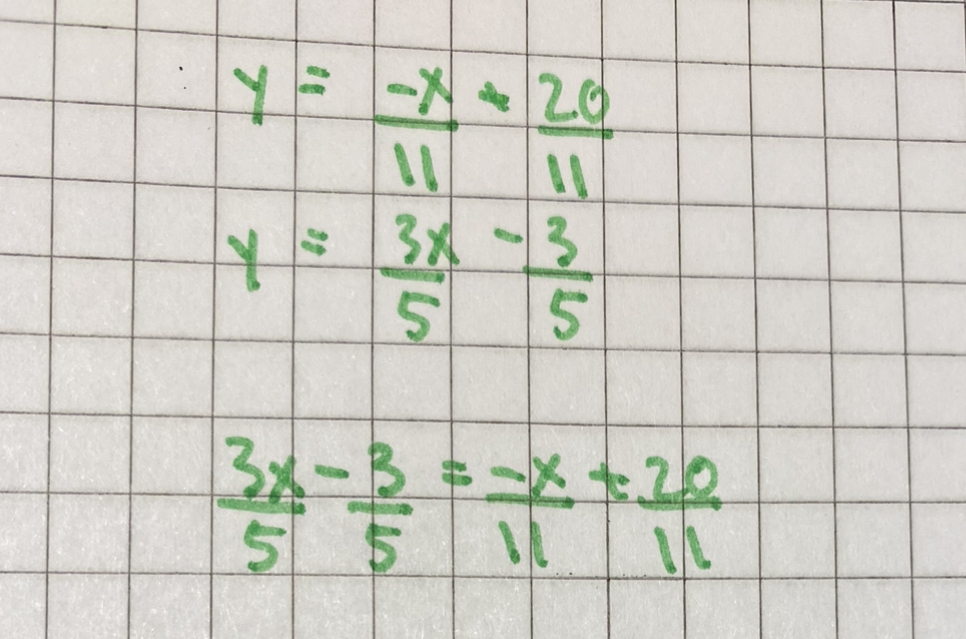 y = -x/11 + 20/11
y = 3x/5 - 3/5
3x/5 - 3/5 = -x/11 + 20/11